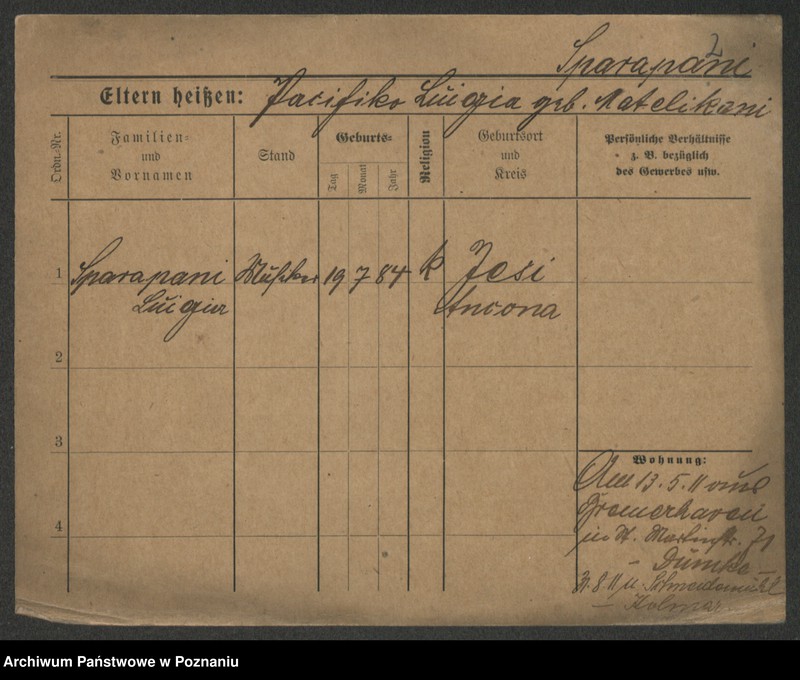 Sparapani
Eltern heißen: Pacifiko Luigia geb. Matelikani
Ordn.-Nr.
Familien-
und
Vornamen
Stand
Geburts-
Tag
Monat
Jahr
Religion
Geburtsort
und
Kreis
Persönliche Verhältnisse
z. B. bezüglich
des Gewerbes usw.
1 Sparapani Musiker 19 7 84 k Jesi
Luigia Ancona
2
3
Wohnung:
Am 13.5.11 aus
Bremerhaven
in St. Martinstr. 71
4
- Dümke -
31.8.11 n. Schneidemühl
- Kolmar
Archiwum Państwowe w Poznaniu